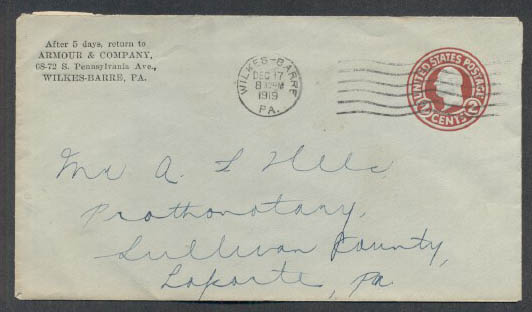 After 5 days, return to
ARMOUR & COMPANY,
68-72 S. Pennsylvania Ave.,
WILKES-BARRE, PA.
WILKES-BARRE
DEC 17
1919
PA.
UNITED STATES POSTAGE
2 CENTS 2
Mr A. L
Prothonotary,
Sullivan County,
Laporte, Pa